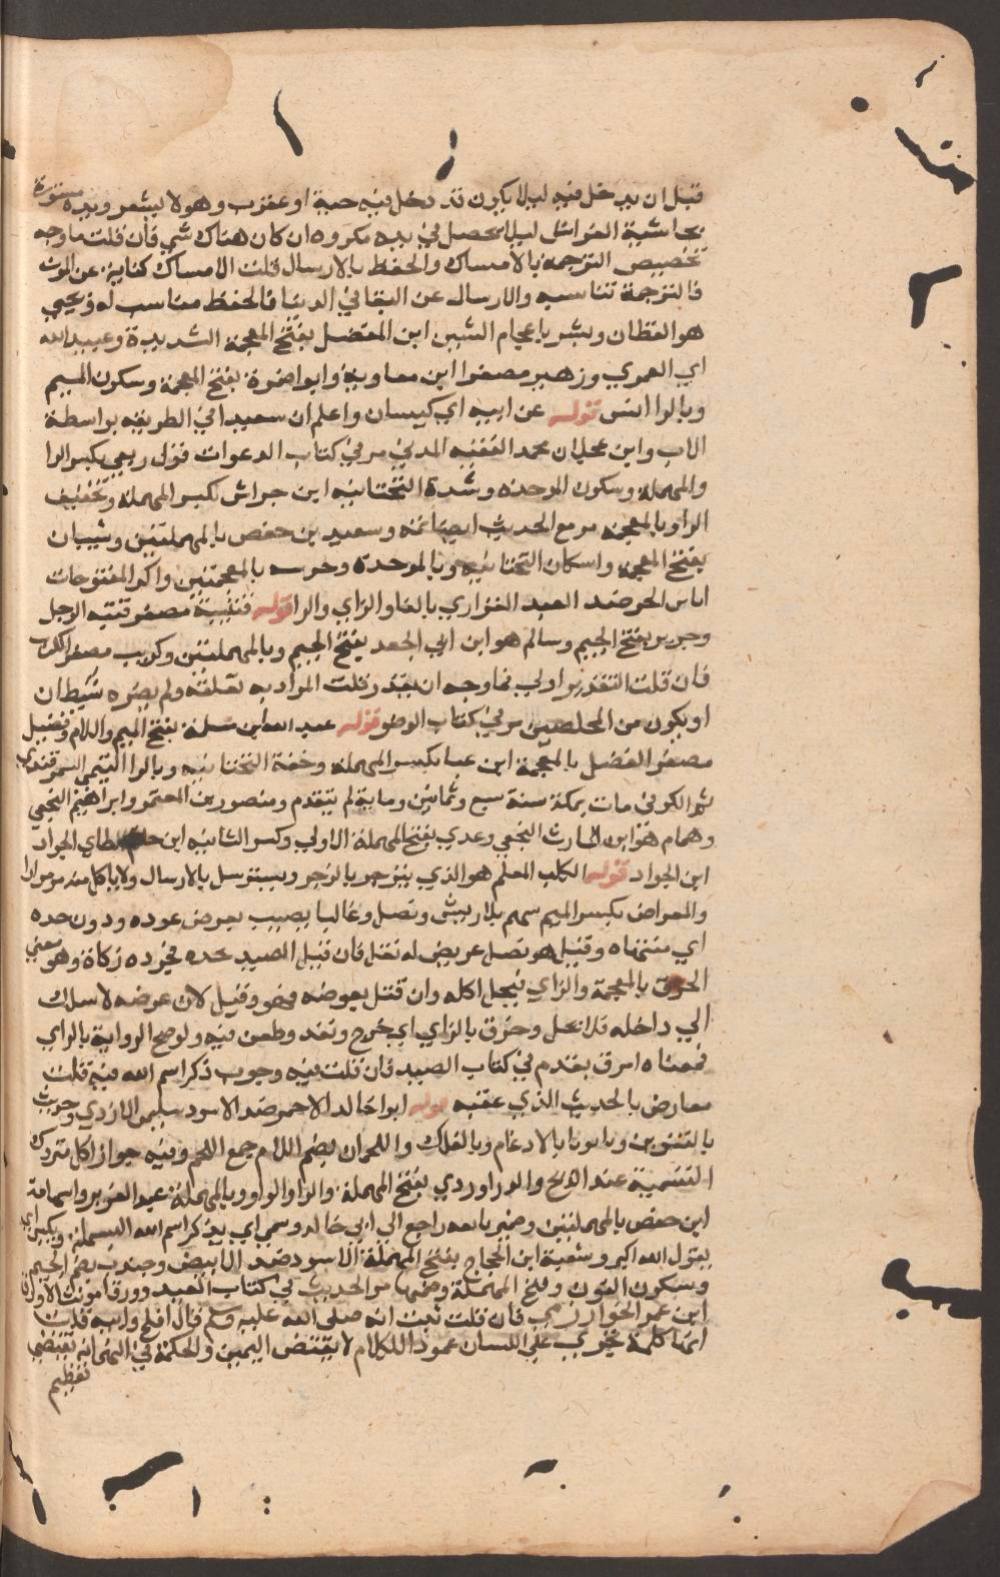 قبل ان يدخل فيه ليلا يكون قد دخل فيه حية او عقرب وهو لا يشعر ويده مستورة
بحاشية الفراش ليلا يحصل في يده مكروه ان كان هناك شي فان قلت ما وجه
تخصيص الترجمة بالامساك والحفظ بالارسال قلت الامساك كناية عن الموت
فالترجمة تناسبه والارسال عن البقا في الدنيا فالحفظ مناسب له ويحيي
هو القطان وبشر باعجام الشين ابن المفضل بفتح المعجمة الشديدة وعبيد الله
اي العمري وزهير مصغرا ابن معاوية وابو اضمرة بفتح المعجمة وسكون الميم
وبالرا انس قوله عن ابيه اي كيسان واعلم ان سعيدا في الطريقه بواسطة
الاب وابن عجلان محمد الفقيه المدني مر في كتاب الدعوات قول ربعي بكسر الرا
والمهملة وسكون الموحده وشدة التختانيه ابن حراش بكسر المهملة وتخفيف
الرا وبالمعجمه مر مع الحديث وسعيد بن حفص بالمهملتين وشيبان
بفتح المعجمة واسكان التختانيه وبالموحدة وخرسه بالمعجمتين والرا المفتوحات
الحر ضد العبد الفزاري بالفا والزاي والرا قوله قتيبة مصغر قتبه الرحل
وجرير بفتح الجيم وسالم هو ابن ابي الجعد بفتح الجيم وبالمهملتين وكريب مصغر الكرب
فان قلت التقدير اولي فما وجه ان يقدر قلت المراد به تعلقه ولم يضره شيطان
او يكون من المخلصين مر في كتاب الوضو قوله عبد الله ابن مسلمة بفتح الميم واللام وفضيل
مصغر الفضل بالمعجمة ابن عياض بكسر المهملة وخفة التختانيه وبالرا التيمي السمرقندي
ثم الكوفي مات بمكة سنة سبع وثمانين وماية لم يتقدم ومنصور بن المعتمر وابراهيم النخعي
وهمام هو ابن الحارث النخعي وعدي بفتح المهملة الاولي وكسر الثانيه ابن حاتم الطاي الجواد
ابن الجواد قوله الكلب المعلم هو الذي ينزجر بالزجر ويسترسل بالارسال ولا ياكل منه مرارا
والمعراض بكسر الميم سهم بلا ريش ونصل وغالبا يصيب بعرض عوده دون حده
اي منتهاه وقيل هو نصل عريض له ثقل فان قتل الصيد بحده فجرحه زكاة وهو معني
الخزق بالمعجمة والزاي فيحل اكله وان قتل بعرضه فهو وقيذ لان عرضه لا يسلك
الي داخله فلا يحل وخزق بالزاي اي جرح ونفذ وطعن فيه ولو صح الرواية بالراي
فمعناه مزق تقدم في كتاب الصيد فان قلت فيه وجوب ذكر اسم الله فيه قلت
معارض بالحديث الذي عقبه قوله ابو خالد الاحمر ضد الاسود سليمن الازدي وحديث
بالتنوين وياتونا بالادغام وبالفك واللحمان بضم اللام جمع اللحم وفيه جواز اكل متروك
التسمية عند الذبح والدراوردي بفتح المهملة والرا والواو وبالمهملة عبد العزيز واسامة
ابن حفص بالمهملتين وضمير تابعه راجع الي ابي خالد وسمي اي يذكر اسم الله البسملة ويكبر اي
يقول الله اكبر وشعبة ابن الحجاج بفتح المهملة الاسود ضد الابيض وجندب بضم الجيم
وسكون النون وفتح المهملة وضمها مر الحديث في كتاب العيد وورقا مونث الاورق
ابن عمر الخوارزمي فان قلت ثبت انه صلي الله عليه وسلم قال افلح وابيه قلت
انها كلمة تجري علي اللسان عمود الكلام لا يقصد اليمين والحكمة في النهي انه يقتضي
تعظيم